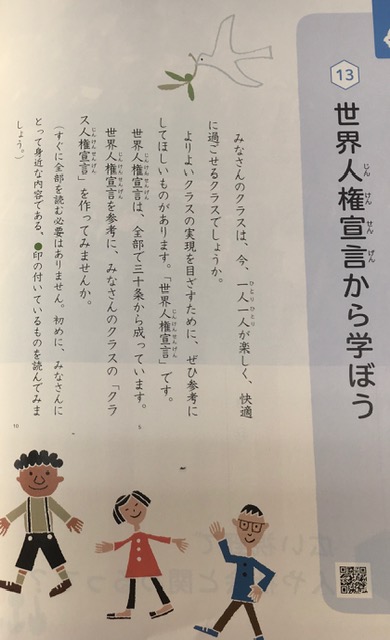 13
世界人権宣言から学ぼう
じんけんせんげん
みなさんのクラスは、今、一人一人が楽しく、快適
ひとりひとり
に過ごせるクラスでしょうか。
よりよいクラスの実現を目ざすために、ぜひ参考に
してほしいものがあります。「世界人権宣言」です。
じんけんせんげん
世界人権宣言は、全部で三十条から成っています。
じんけんせんげん
世界人権宣言を参考に、みなさんのクラスの「クラ
じんけんせんげん
ス人権宣言」を作ってみませんか。
じんけんせんげん
(すぐに全部を読む必要はありません。初めに、みなさんに
とって身近な内容である、●印の付いているものを読んでみま
しょう。)
5
10